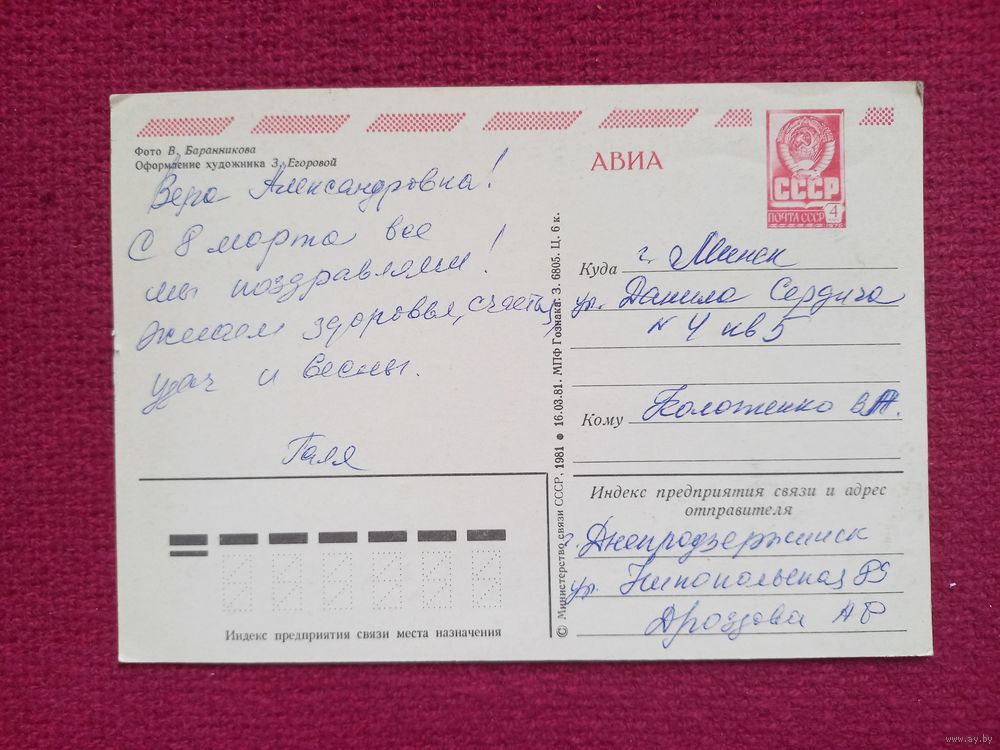 Фото В. Баранникова
Оформление художника З. Егоровой
Вера Александровна!
С 8 марта все
мы поздравляем!
Желаем здоровья, счастья,
удач и весны.
Галя
Индекс предприятия связи места назначения
© Министерство связи СССР, 1981 ● 16.03.81. МПФ Гознака. З. 6805. Ц. 6 к.
АВИА
СССР
ПОЧТА СССР 4
Куда г. Минск
ул. Данила Сердича
N 4 кв 5
Кому Коложенко В.А.
Индекс предприятия связи и адрес
отправителя
г. Днепродзержинск
ул. Никопольская 89
Дроздова
www.ay.by